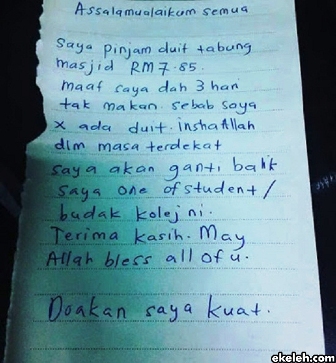 Assalamualaikum semua
Saya pinjam duit tabung
masjid RM 7.85.
maaf saya dah 3 hari
tak makan. sebab saya
x ada duit. inshaAllah
dlm masa terdekat
saya akan ganti balik
saya one of student /
budak kolej ni.
Terima kasih. May
Allah bless all of u.
Doakan saya kuat.
ekeleh.com